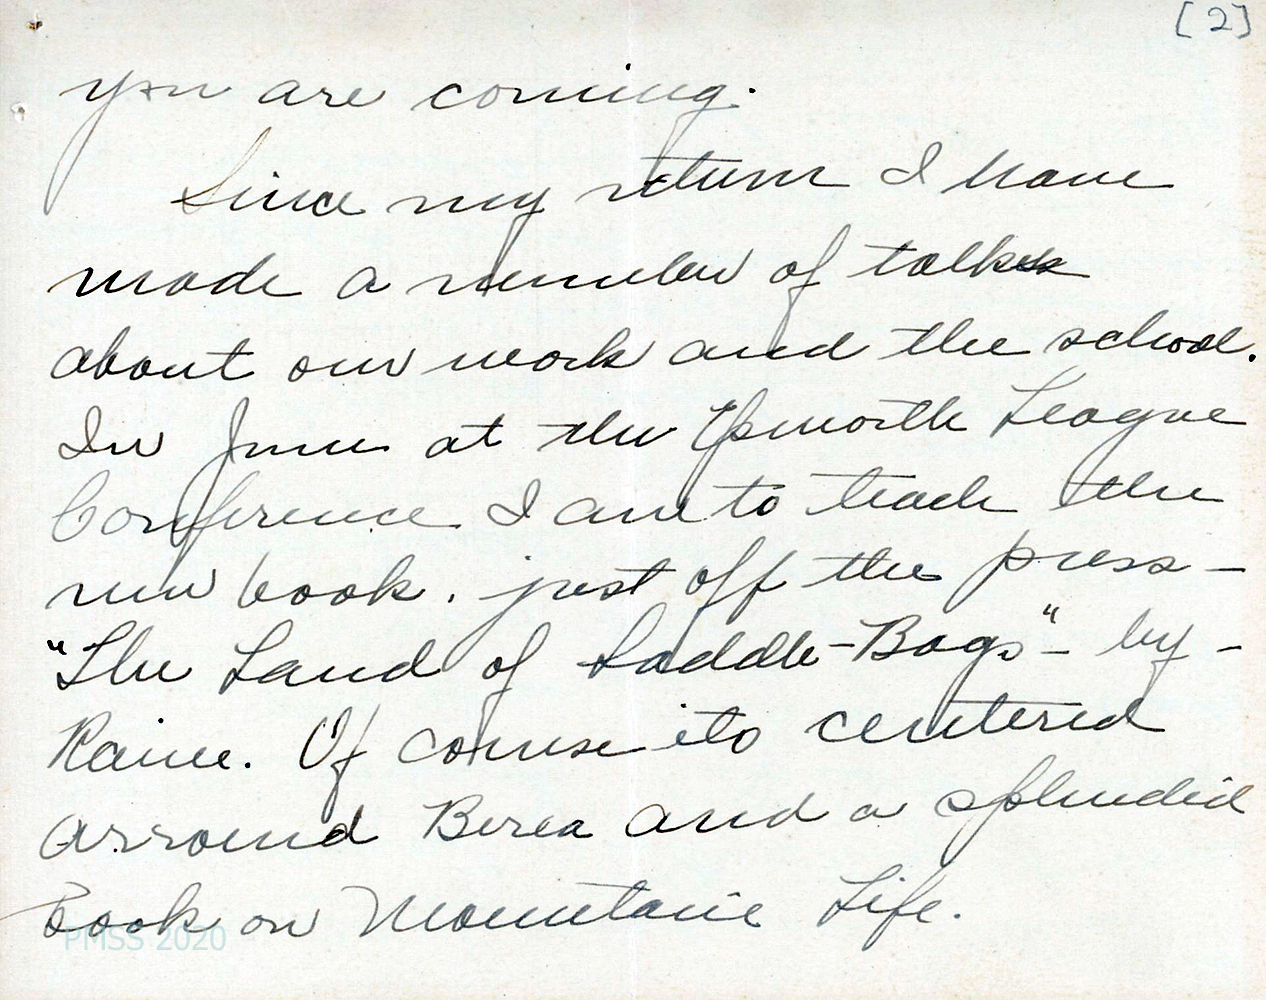 [2]
you are coming.
Since my return I have
made a number of talks
about our work and the school.
In June at the Epworth League
Conference I am to teach the
new book. just off the press -
"The Land of Saddle-Bags" - by -
Raine. Of course its centered
arround Berea and a splendid
book on Mountain Life.
PMSS 2020